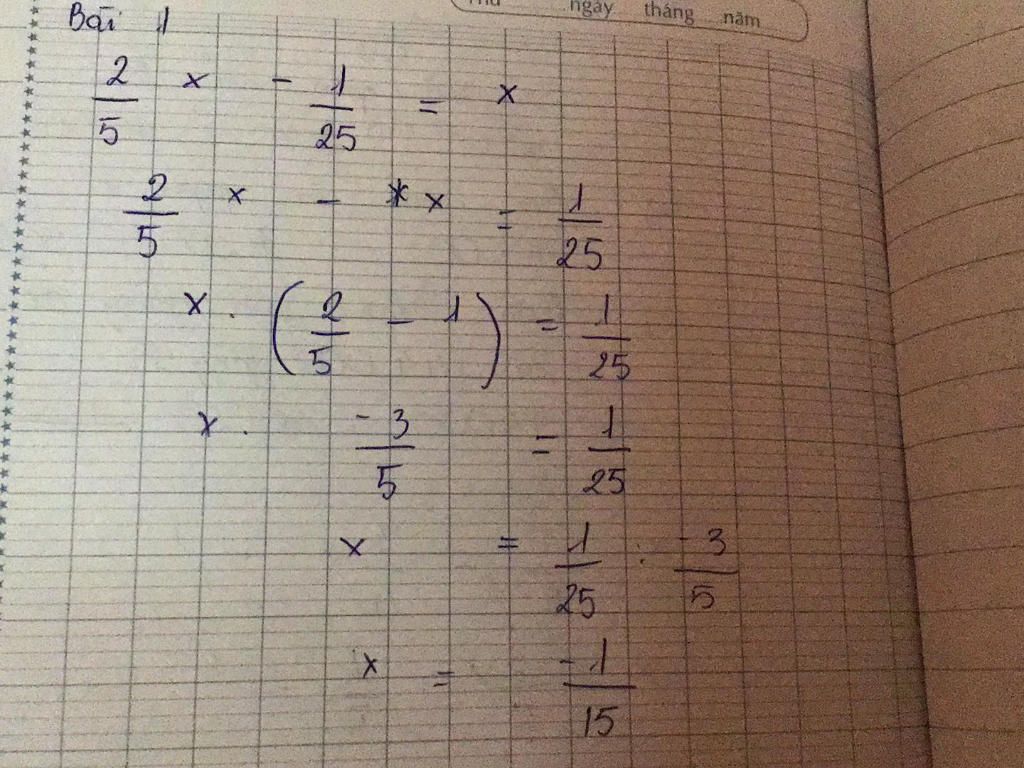 Thứ ngày tháng năm
Bài 1
2/5 x - 1/25 = x
2/5 x - x = 1/25
x . (2/5 - 1) = 1/25
x . -3/5 = 1/25
x = 1/25 : -3/5
x = -1/15